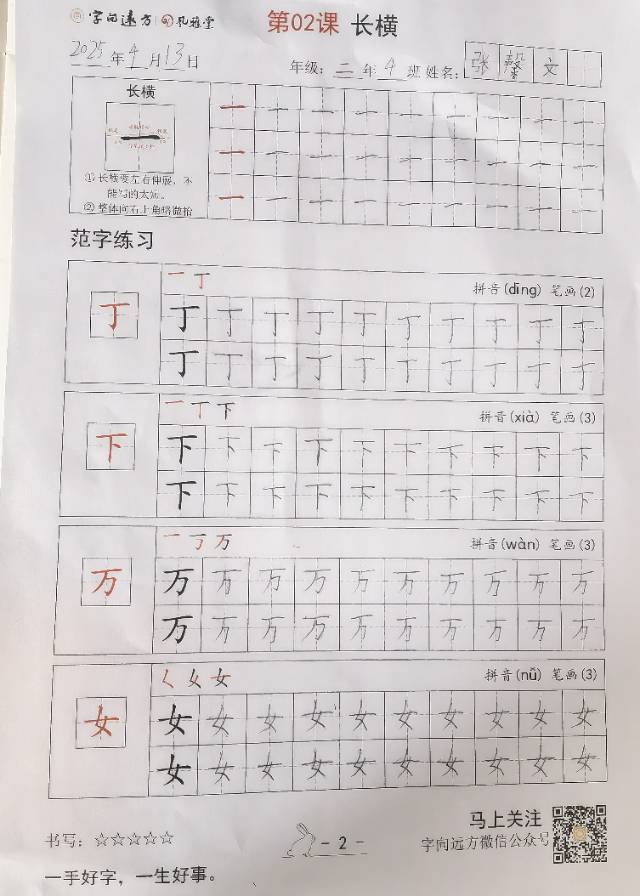 字向远方 孔雅堂
第02课 长横
2025年4月13日 年级：二年4班 姓名：张馨文
长横
①长横要左右伸展，不
能写的太短。
②整体向右上角略微抬
范字练习
一 丁 拼音(dīng) 笔画(2)
丁 丁 丁 丁 丁 丁 丁 丁 丁 丁 丁
丁 丁 丁 丁 丁 丁 丁 丁 丁 丁
一 丁 下 拼音(xià) 笔画(3)
下 下 下 下 下 下 下 下 下 下 下
下 下 下 下 下 下 下 下 下 下
一 丆 万 拼音(wàn) 笔画(3)
万 万 万 万 万 万 万 万 万 万 万
万 万 万 万 万 万 万 万 万 万
𡿨 女 女 拼音(nǚ) 笔画(3)
女 女 女 女 女 女 女 女 女 女 女
女 女 女 女 女 女 女 女 女 女
书写：☆☆☆☆☆
- 2 -
马上关注
字向远方微信公众号
一手好字，一生好事。